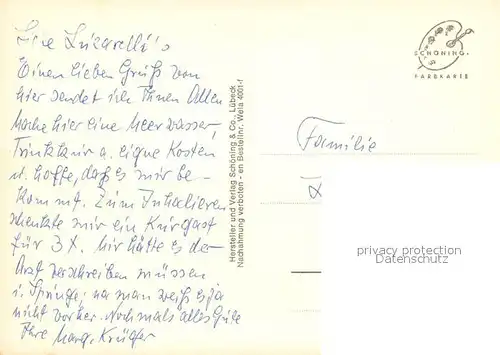 Liebe Luzarelli's
Einen lieben Gruß von
hier sendet ich Ihnen Allen
Mache hier eine Meerwasser,
Trinkkur a. eigne Kosten
u. hoffe, daß es mir be-
kommt. Zum Inhalieren
schenkte mir ein Kurgast
für 3 x. Mir hätte es der
Arzt verschreiben müssen
i. Spritze, na man weiß es ja
nicht vorher. Nochmals alles Gute
Ihre Marg. Krüger
Hersteller und Verlag Schöning & Co., Lübeck
Nachahmung verboten - en Bestellnr. Wela 4001-f
SCHÖNING-
FARBKARTE
Familie
privacy protection
Datenschutz